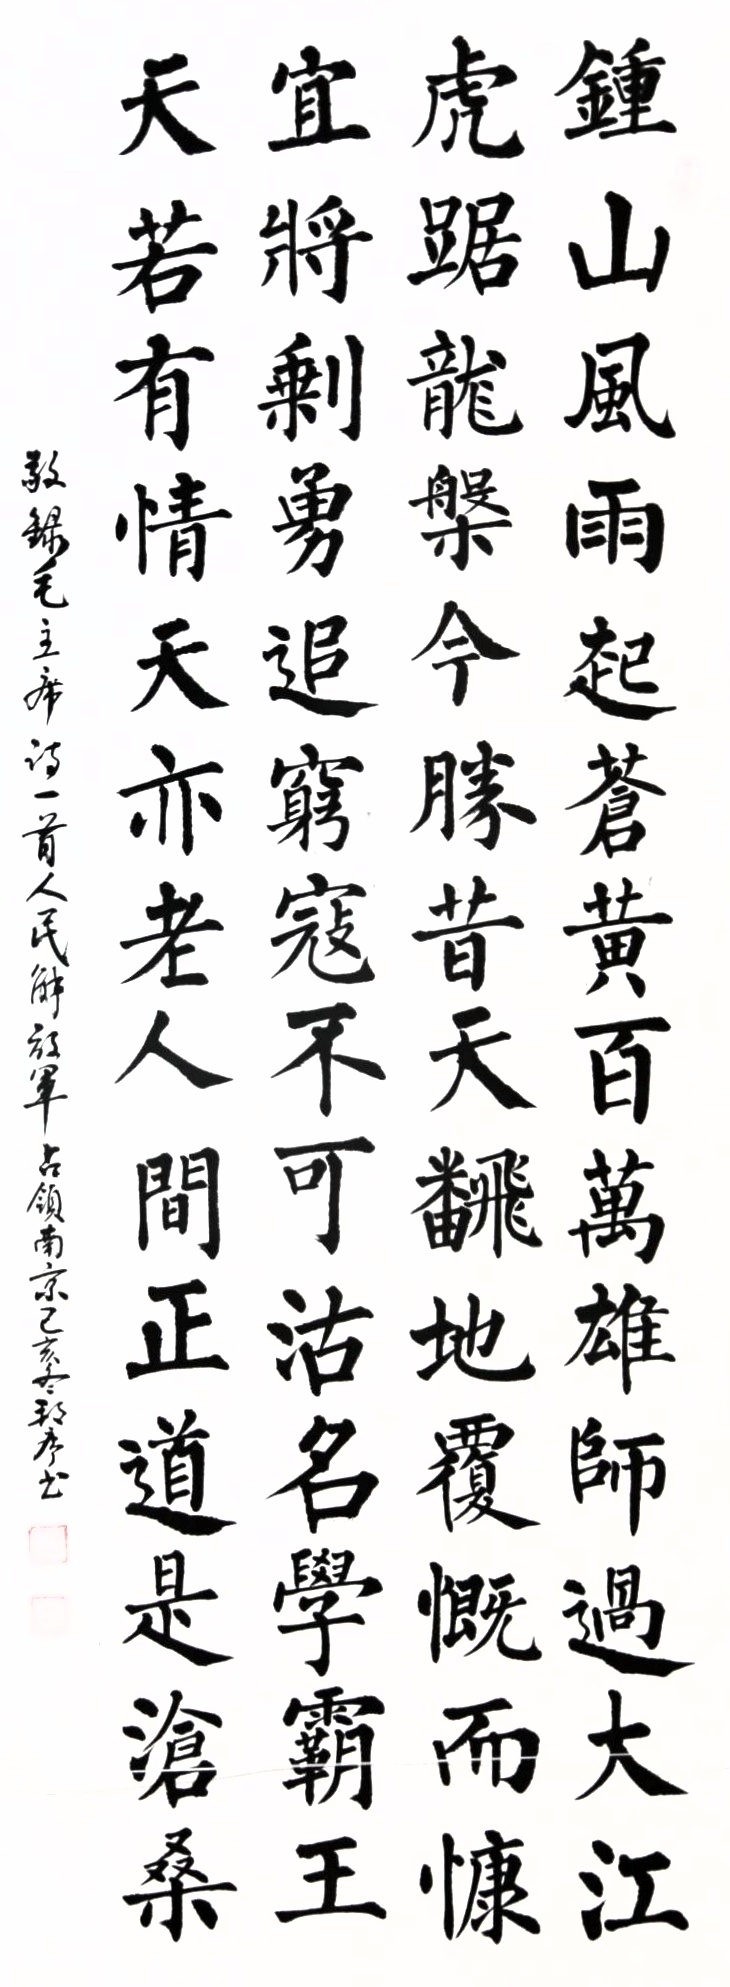 鍾山風雨起蒼黃百萬雄師過大江
虎踞龍槃今勝昔天飜地覆慨而慷
宜將剩勇追窮寇不可沽名學霸王
天若有情天亦老人間正道是滄桑
敬錄毛主席诗一首人民解放軍占領南京己亥冬邦彥书